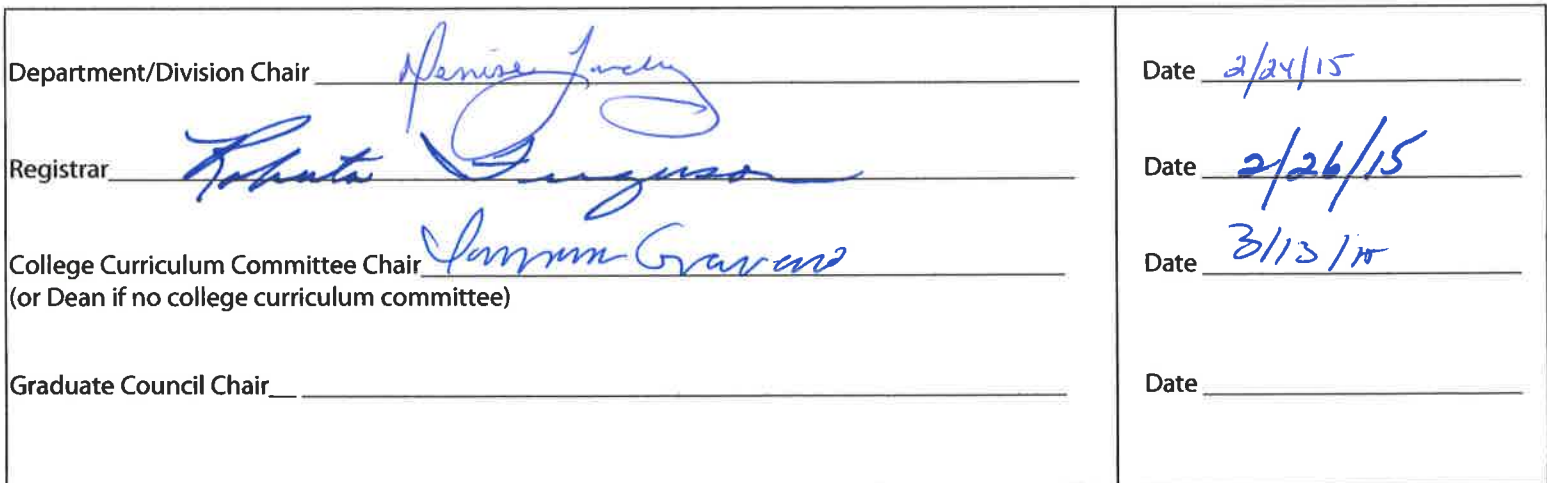 Department/Division Chair Denise Date 2/24/15
Registrar Roberta Ferguson Date 2/26/15
College Curriculum Committee Chair Date 3/13/15
(or Dean if no college curriculum committee)
Graduate Council Chair Date